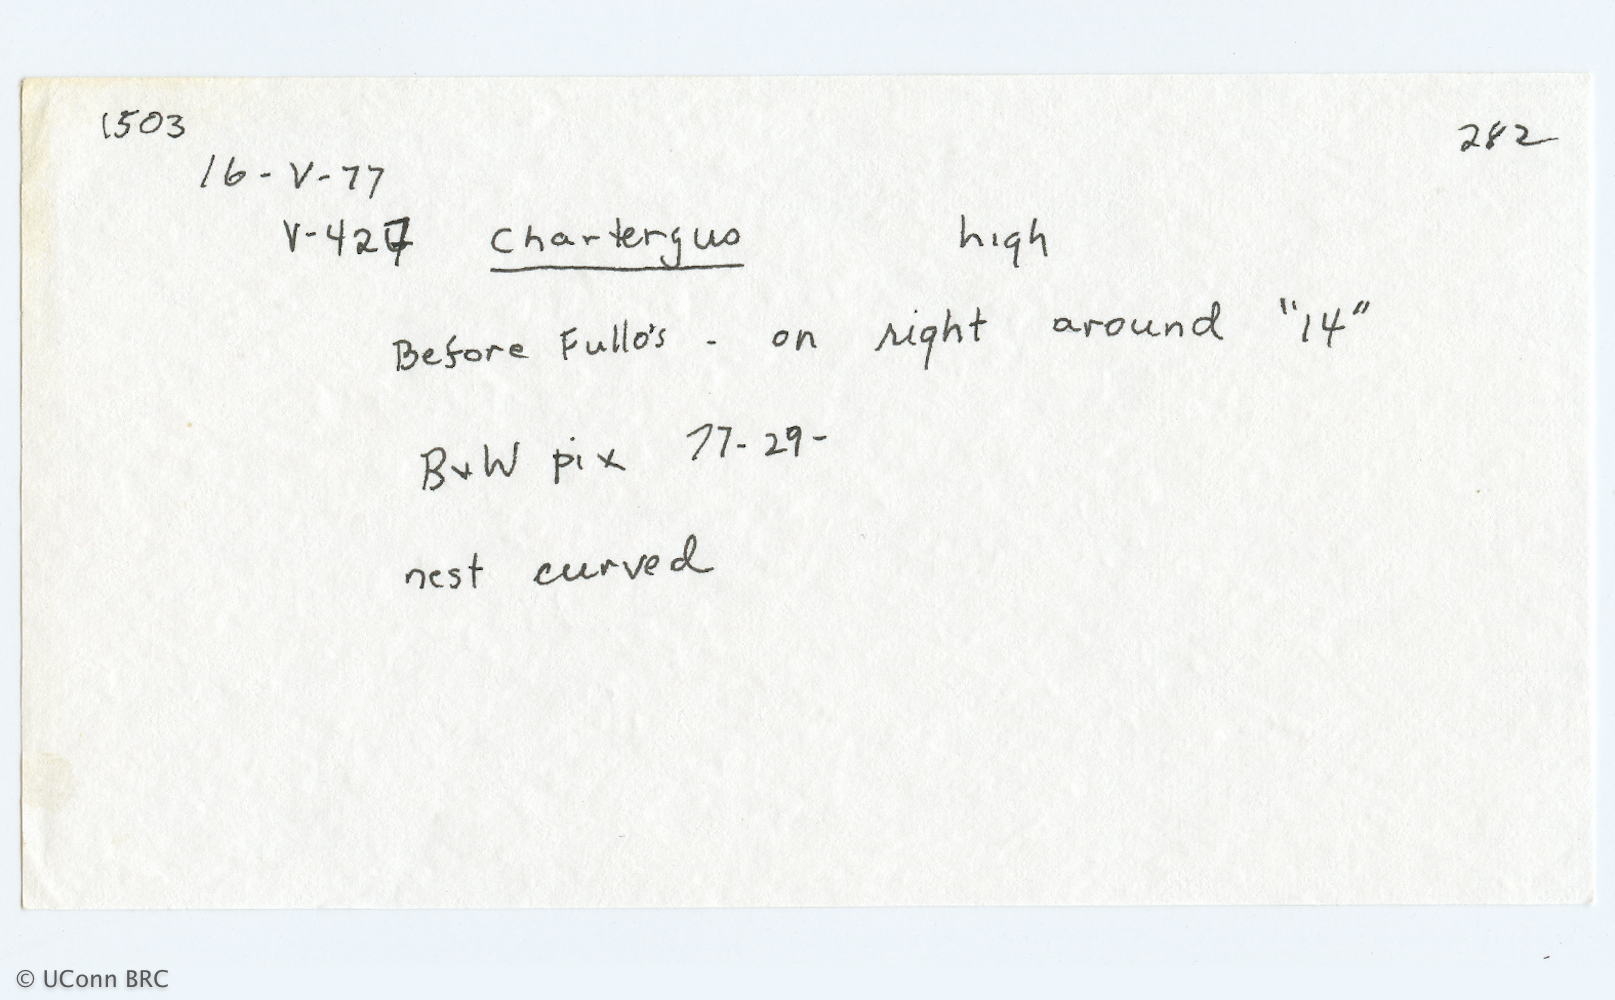 1503
282
16-V-77
V-427 Chartergus high
Before Fullo's - on right around "14"
B+W pix 77-29-
nest curved
© UConn BRC